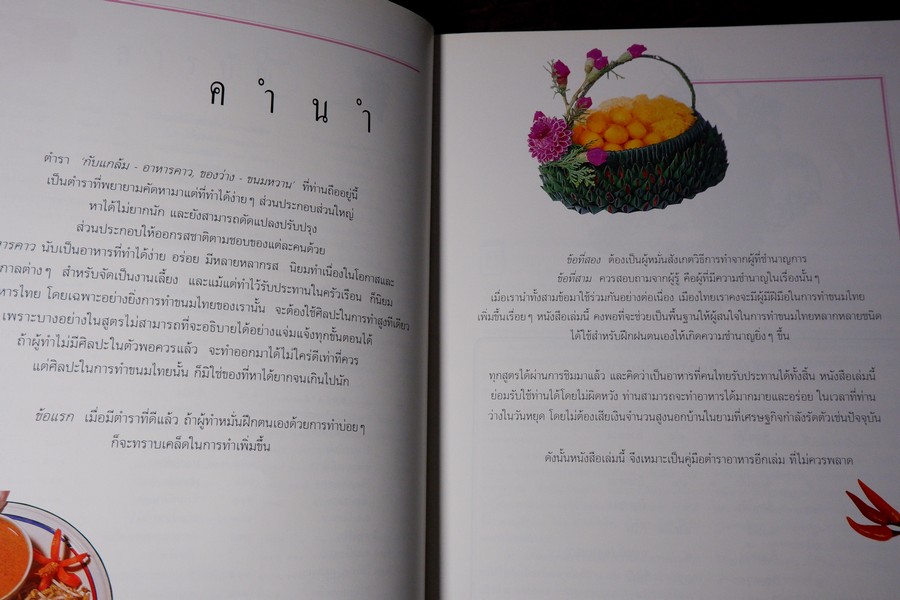 คำนำ
ตำรา 'กับแกล้ม - อาหารคาว, ของว่าง - ขนมหวาน' ที่ท่านถืออยู่นี้
เป็นตำราที่พยายามคัดหามาแต่ที่ทำได้ง่ายๆ ส่วนประกอบส่วนใหญ่
หาได้ไม่ยากนัก และยังสามารถดัดแปลงปรับปรุง
ส่วนประกอบให้ออกรสชาติตามชอบของแต่ละคนด้วย
หารคาว นับเป็นอาหารที่ทำได้ง่าย อร่อย มีหลายหลากรส นิยมทำเนื่องในโอกาสและ
กาลต่างๆ สำหรับจัดเป็นงานเลี้ยง และแม้แต่ทำไว้รับประทานในครัวเรือน ก็นิยม
หารไทย โดยเฉพาะอย่างยิ่งการทำขนมไทยของเรานั้น จะต้องใช้ศิลปะในการทำสูงทีเดียว
เพราะบางอย่างในสูตรไม่สามารถที่จะอธิบายได้อย่างแจ่มแจ้งทุกขั้นตอนได้
ถ้าผู้ทำไม่มีศิลปะในตัวพอควรแล้ว จะทำออกมาได้ไม่ใคร่ดีเท่าที่ควร
แต่ศิลปะในการทำขนมไทยนั้น ก็มิใช่ของที่หาได้ยากจนเกินไปนัก
ข้อแรก เมื่อมีตำราที่ดีแล้ว ถ้าผู้ทำหมั่นฝึกตนเองด้วยการทำบ่อยๆ
ก็จะทราบเคล็ดในการทำเพิ่มขึ้น
ข้อที่สอง ต้องเป็นผู้หมั่นสังเกตวิธีการทำจากผู้ที่ชำนาญการ
ข้อที่สาม ควรสอบถามจากผู้รู้ คือผู้ที่มีความชำนาญในเรื่องนั้นๆ
เมื่อเรานำทั้งสามข้อมาใช้ร่วมกันอย่างต่อเนื่อง เมืองไทยเราคงจะมีผู้มีฝีมือในการทำขนมไทย
เพิ่มขึ้นเรื่อยๆ หนังสือเล่มนี้ คงพอที่จะช่วยเป็นพื้นฐานให้ผู้สนใจในการทำขนมไทยหลากหลายชนิด
ได้ใช้สำหรับฝึกฝนตนเองให้เกิดความชำนาญยิ่งๆ ขึ้น
ทุกสูตรได้ผ่านการชิมมาแล้ว และคิดว่าเป็นอาหารที่คนไทยรับประทานได้ทั้งสิ้น หนังสือเล่มนี้
ย่อมรับใช้ท่านได้โดยไม่ผิดหวัง ท่านสามารถจะทำอาหารได้มากมายและอร่อย ในเวลาที่ท่าน
ว่างในวันหยุด โดยไม่ต้องเสียเงินจำนวนสูงนอกบ้านในยามที่เศรษฐกิจกำลังรัดตัวเช่นปัจจุบัน
ดังนั้นหนังสือเล่มนี้ จึงเหมาะเป็นคู่มือตำราอาหารอีกเล่ม ที่ไม่ควรพลาด